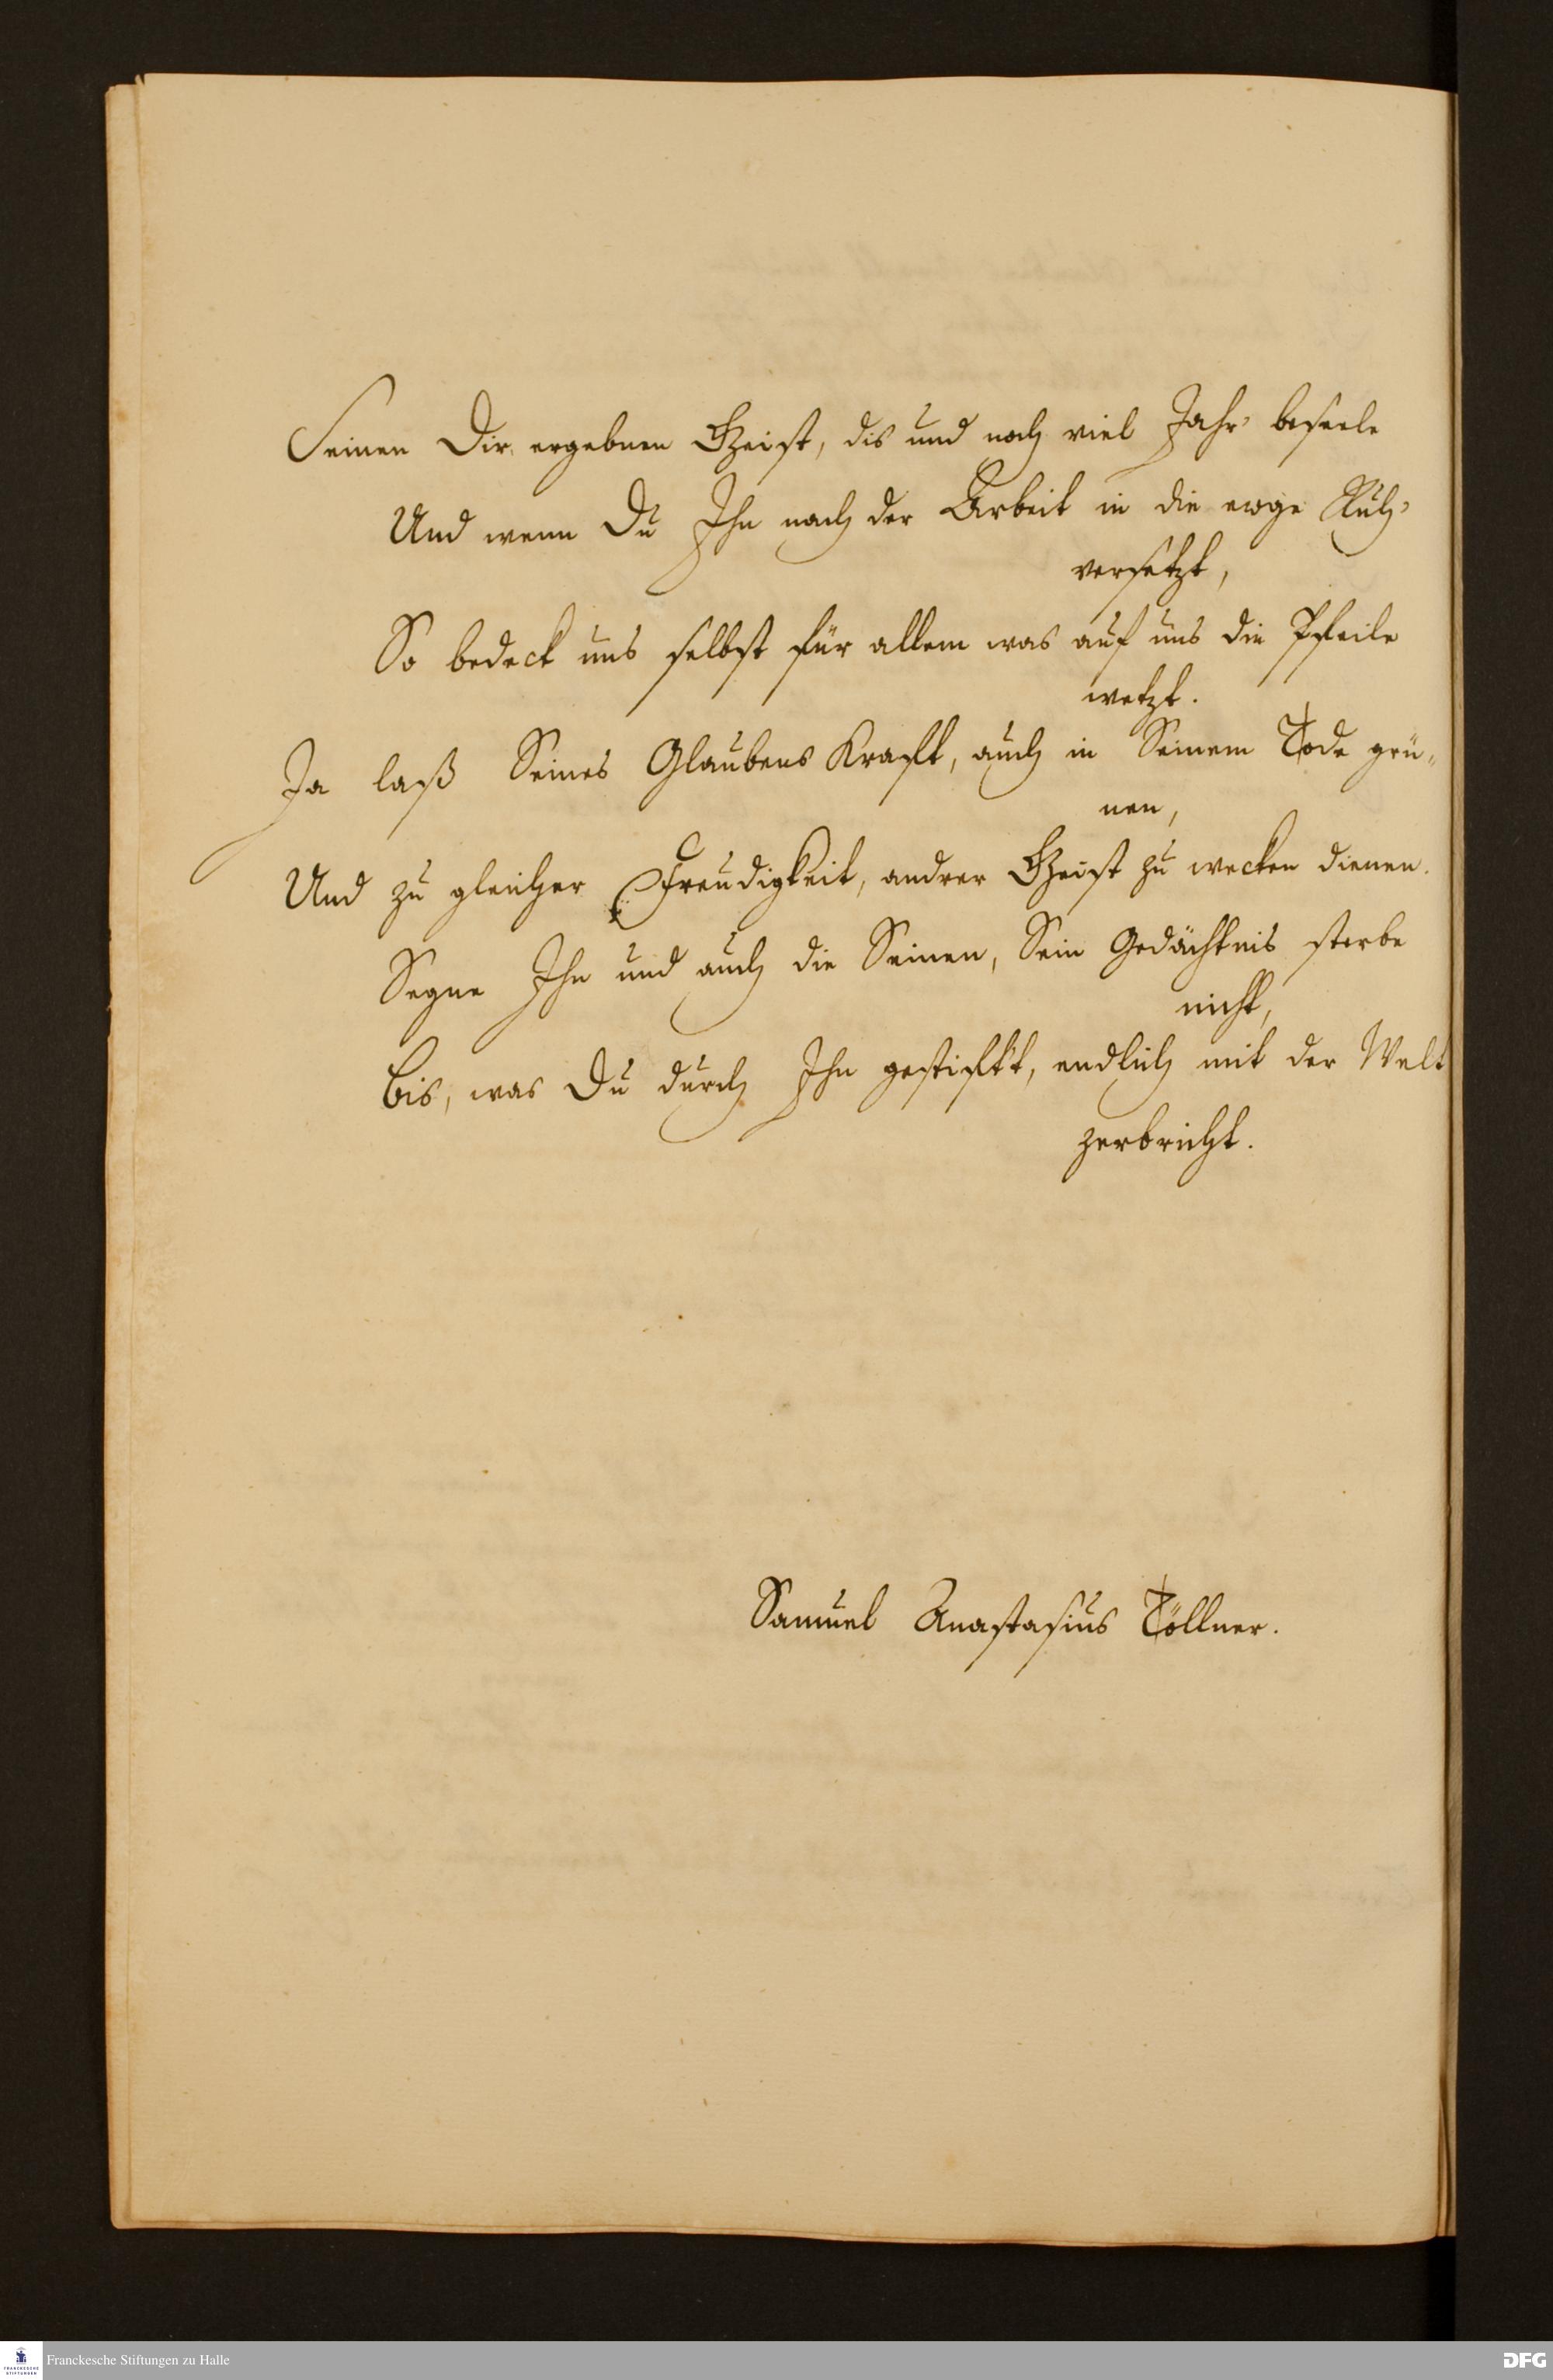 Seinen Dir ergebnen Geist, dis und noch viel Jahr' beseele
Und wenn Du Ihn nach der Arbeit in die ewge Ruh'
versetzt,
So bedeck uns selbst für allem was auf uns die Pfeile
wetzt.
Ja laß Seines Glaubens Kraft, auch in Seinem Tode grü„
nen,
Und zu gleicher Freudigkeit, andrer Geist zu wecken dienen.
Segne Ihn und auch die Seinen, Sein Gedächtnis sterbe
nicht,
Bis, was Du durch Ihn gestift't, endlich mit der Welt
zerbricht.
Samuel Anastasius Töllner.
FRANCKESCHE STIFTUNGEN
Franckesche Stiftungen zu Halle
DFG